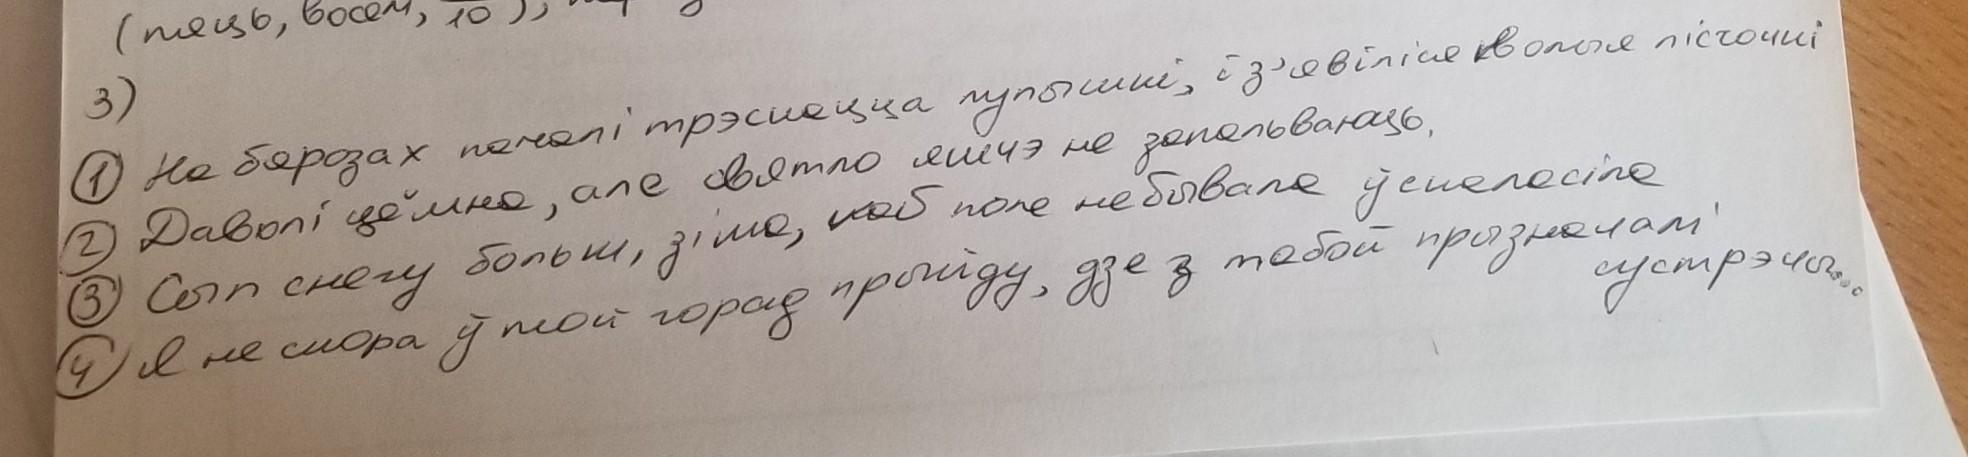 (пяць, восем, 10),
3)
① На бярозах пачалі трэскацца пупышкі, і з'явіліся кволыя лісточкі
② Даволі цёмна, але святло яшчэ не запальваюць.
③ Сып снегу больш, зіма, каб поле не бывала ў снеласіле
④ Я не скора ў той горад прыйду, дзе з табой прызначалі
сустрэчы...